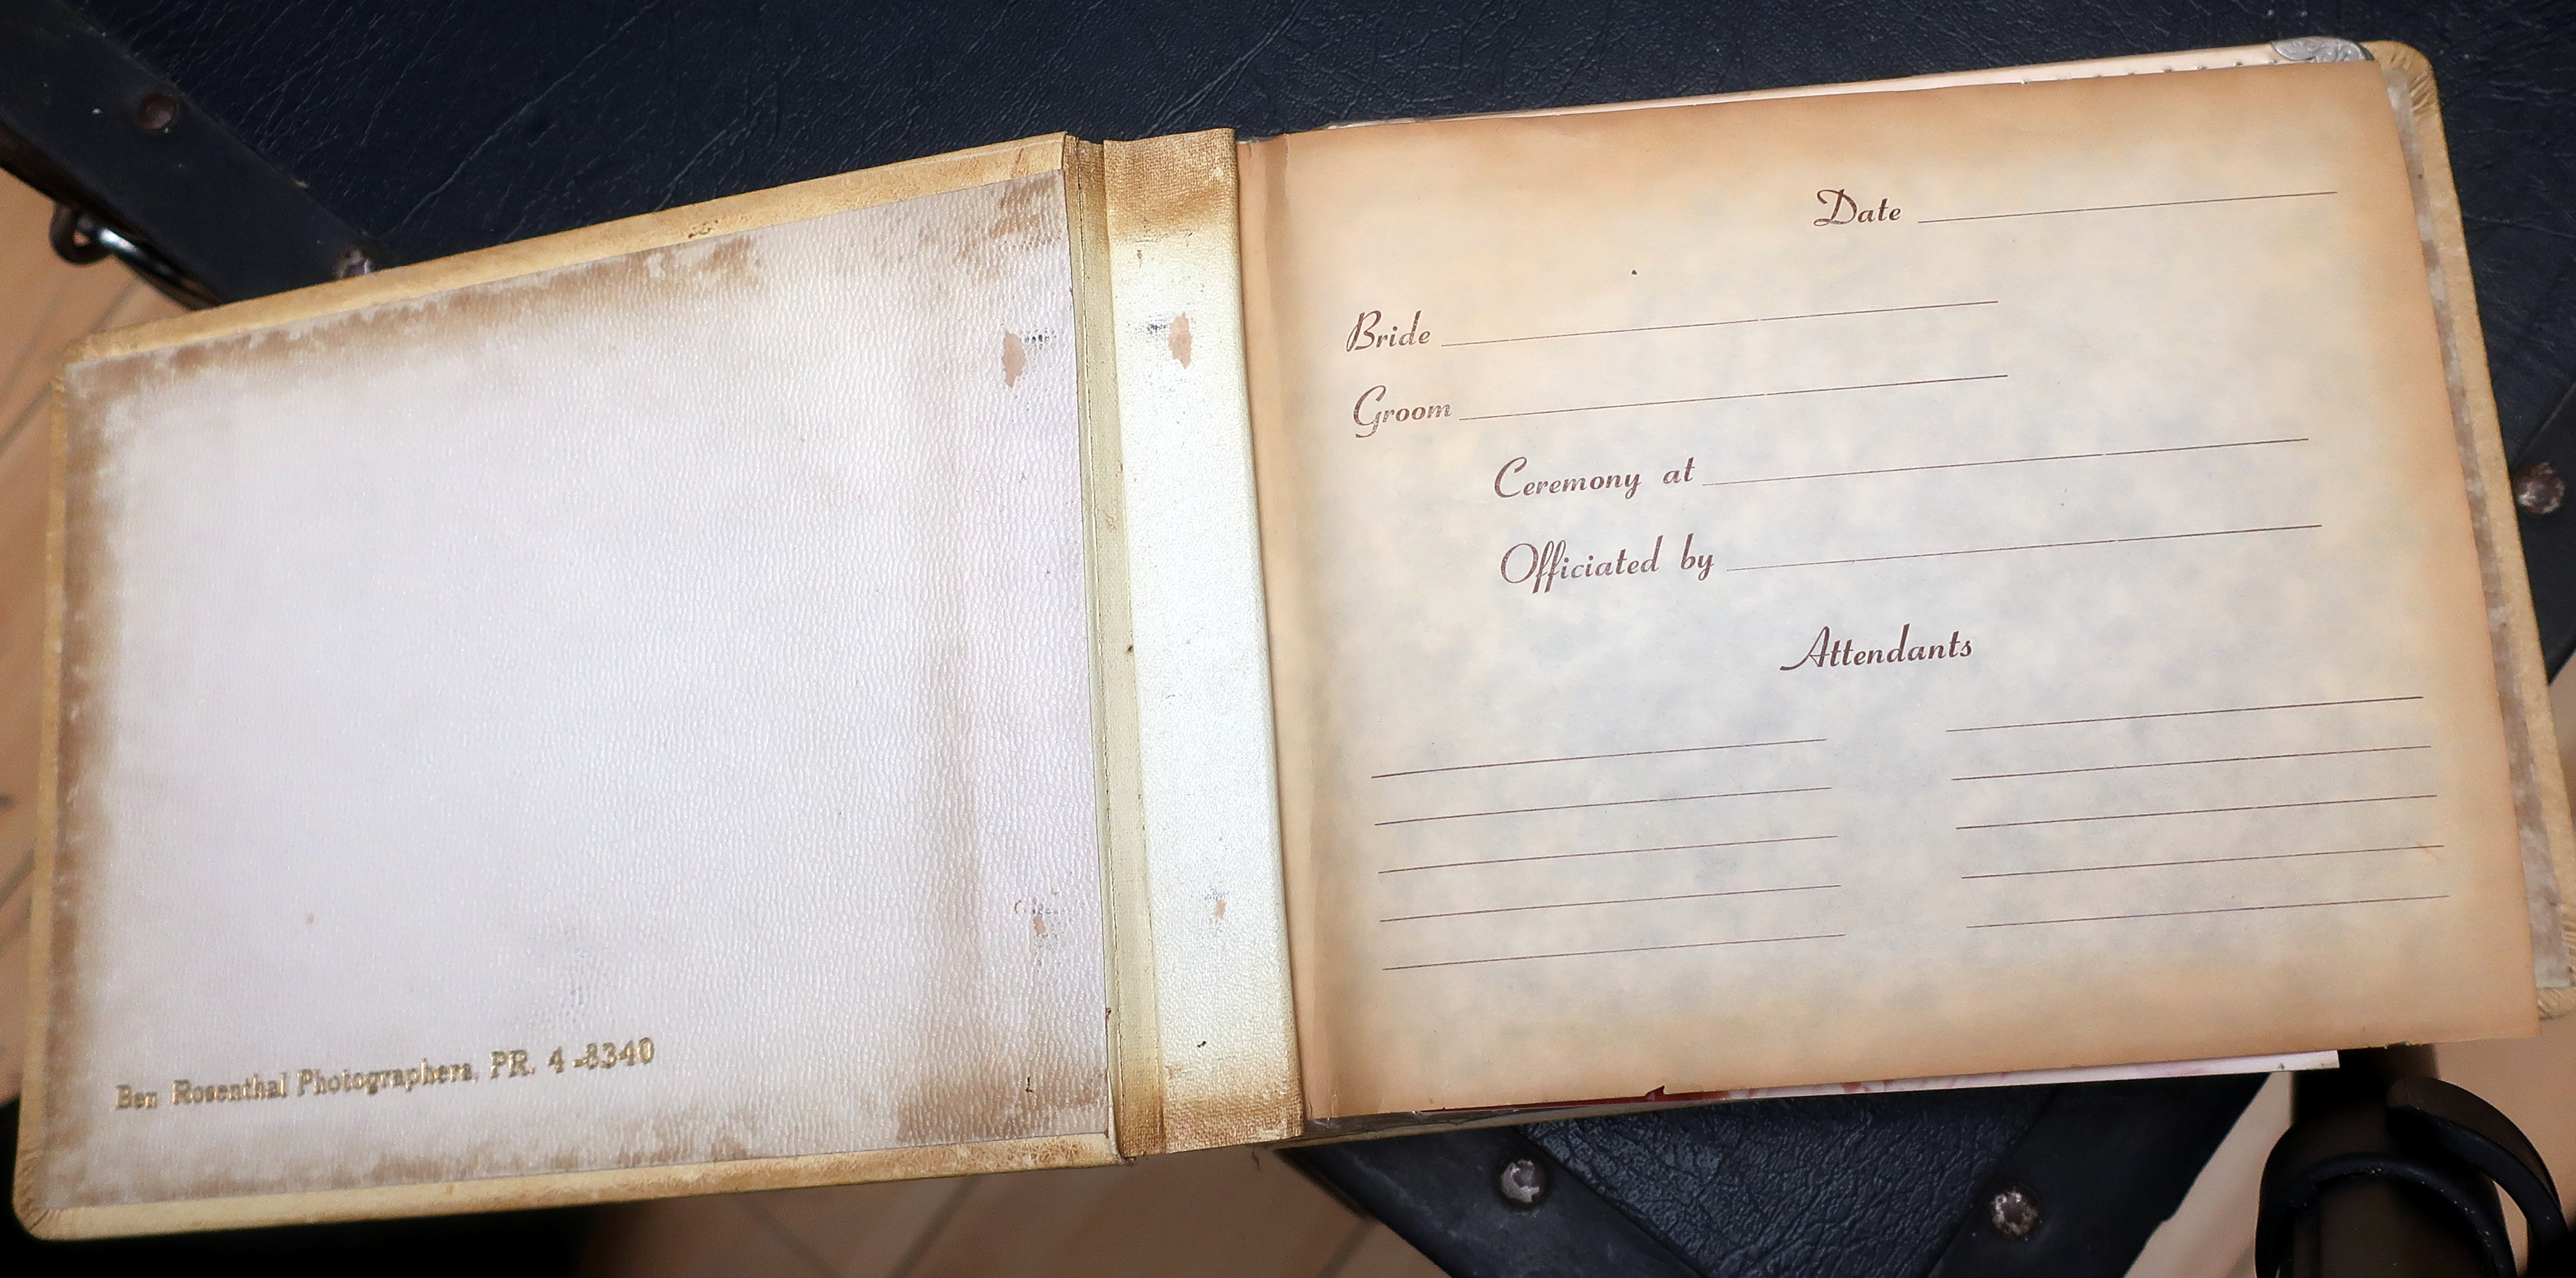 Ben Rosenthal Photographers, PR. 4-8340
Date
Bride
Groom
Ceremony at
Officiated by
Attendants